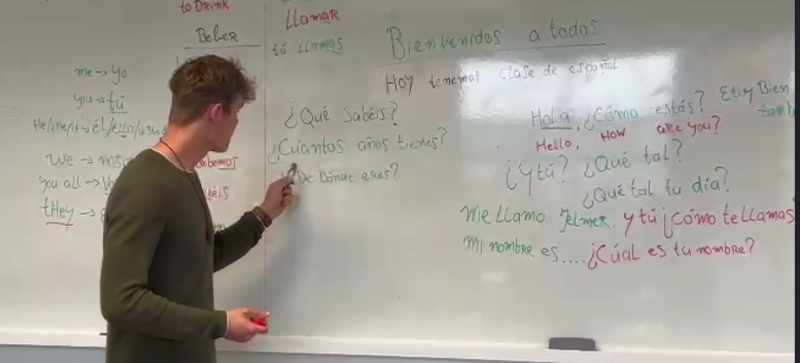 to DRINK
BebeR
me → yo
you → tú
He/she/it → él/ella/usted
We →
you all →
tHey →
bemos
éis
LLamaR
tú LLamas
¿Qué Sabéis?
¿Cuantos años tienes?
¿De Dónde eres?
Bienvenidos a todos
Hoy tenemos clase de español
Hola, ¿Cómo estás? Estoy Bien
Hello, How are you? tamb
¿y tú? ¿Qué tal?
¿Qué tal tu día?
me LLamo Jelmer y tú ¿cómo te llamas
mi nombre es.... ¿Cúal es tu nombre?